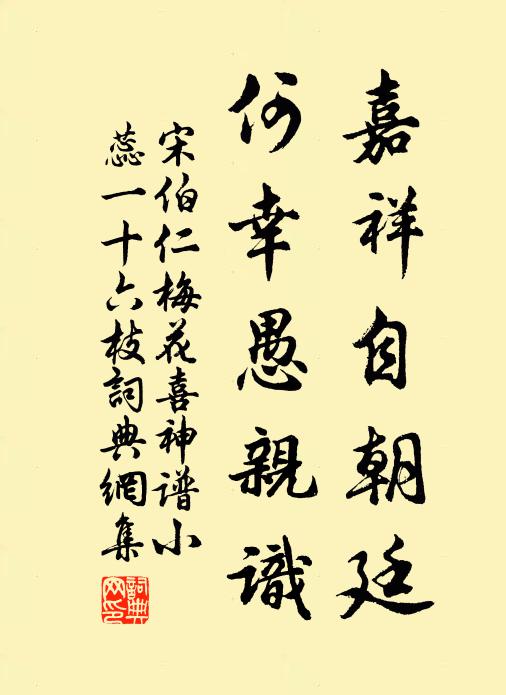 嘉祥自朝廷
何幸愚親識
宋伯仁梅花喜神譜小
蕊一十六枝詞典網集
詞典網印